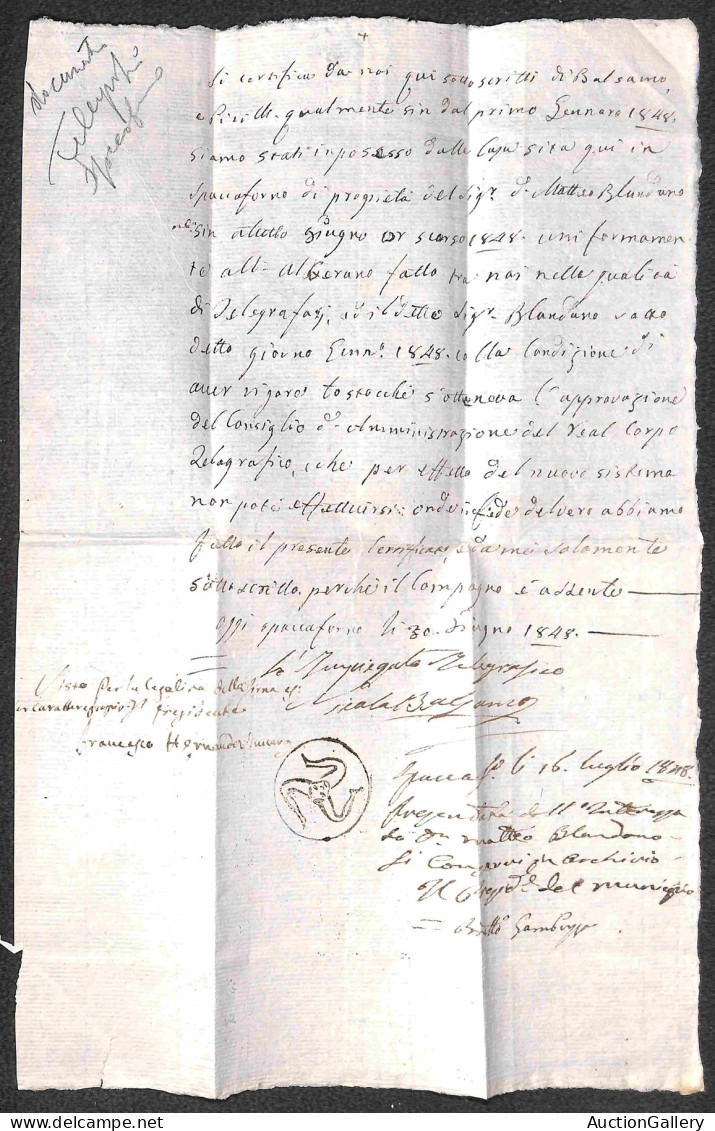 documenti
Si certifica da noi qui sottoscritti di Balsamo,
qualmente sin dal primo Gennaro 1848.
siamo stati in possesso della Casa sita qui in
Spaccaforno di proprietà del Sigr. Dn. Matteo Blandano
sin a tutto Giugno or scorso 1848. uniformamen
te all' Alberano fatto tra noi nelle qualità
di Telegrafasj, ed il detto Sigr. Blandano sotto
detto giorno Genn.o 1848. colla Condizione di
aver vigore tostocchè s'ottenova l'approvazione
del Consiglio d'Amministrazione del Real Corpo
Telegrafico, che per effetto del nuovo sistema
non potè effettuirsi: onde in fede del vero abbiamo
fatto il presente Certificato, e da me solamente
sottoscritto, perchè il Compagno è assente
oggi Spaccaforno li 30. Giugno 1848.
L'Impiegato Telegrafico
Balsamo
Visto per la legalità della firma
Presidente
Francesco
Spaccaf.o li 16. Luglio 1848.
Presentata dall'Interessa
to Dn. Matteo Blandano
Si Conservi in Archivio
Il Presid.te del Municipio
AuctionGallery